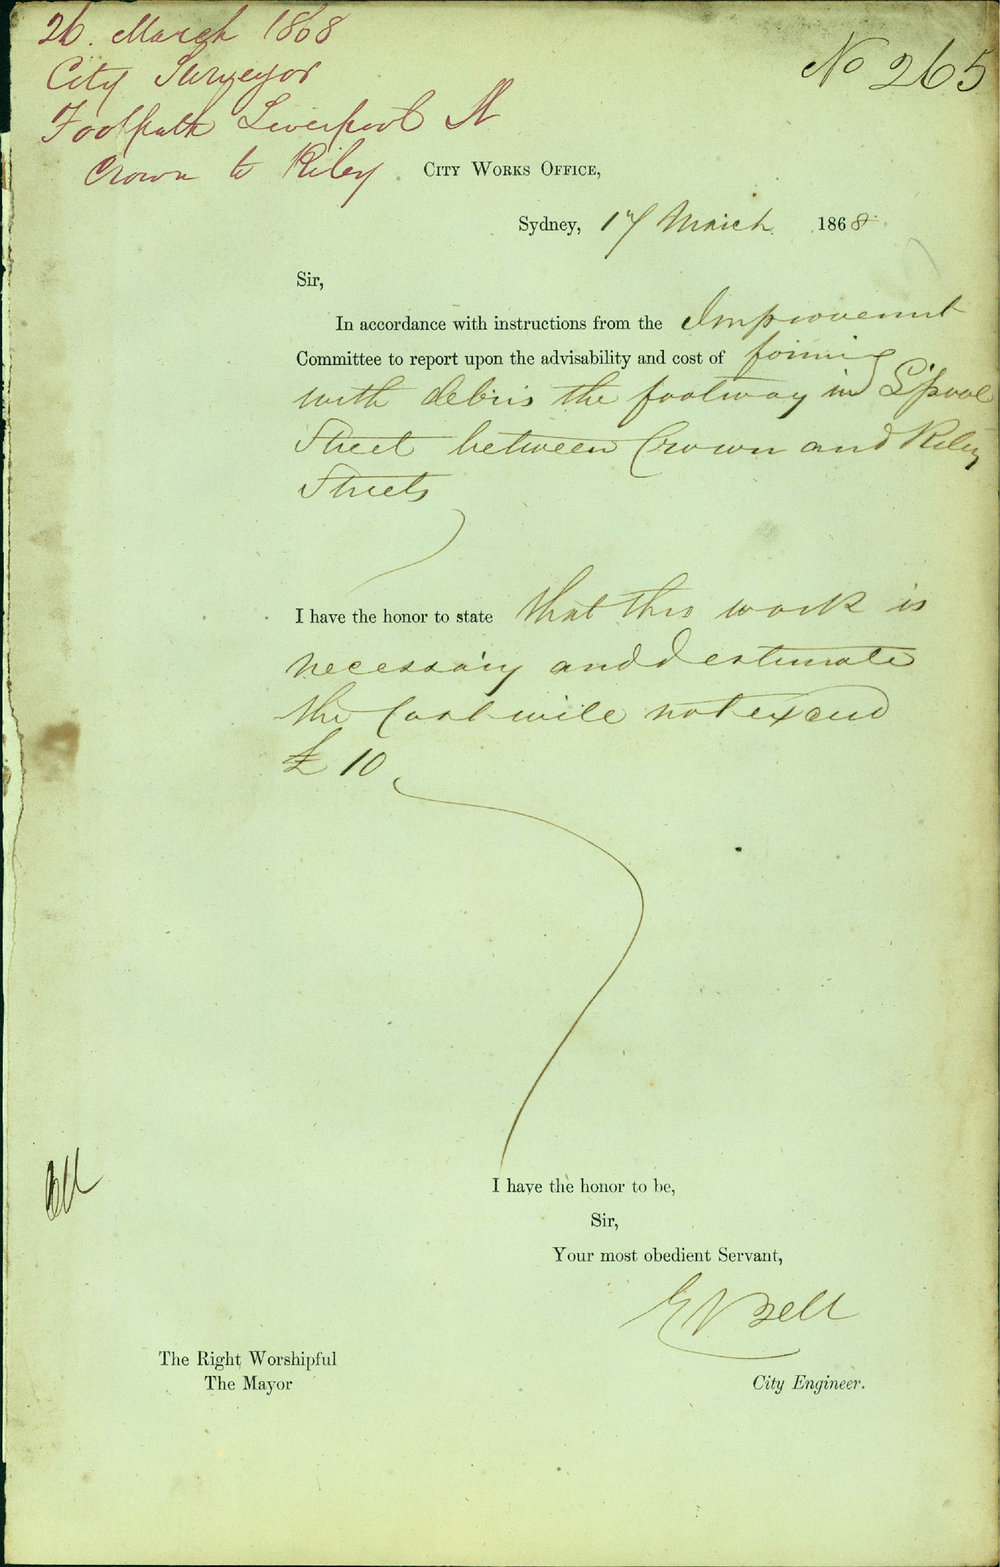 26. March 1868
City Surveyor
Footpath Liverpool St
Crown to Riley
No 265
City Works Office,
Sydney, 17 March 1868
Sir,
In accordance with instructions from the Improvement
Committee to report upon the advisability and cost of forming
with debris the footway in L'pool
Street between Crown and Riley
Streets
I have the honor to state that this work is
necessary and estimate
the Cost will not exceed
£10
I have the honor to be,
Sir,
Your most obedient Servant,
E Bell
The Right Worshipful
The Mayor
City Engineer.